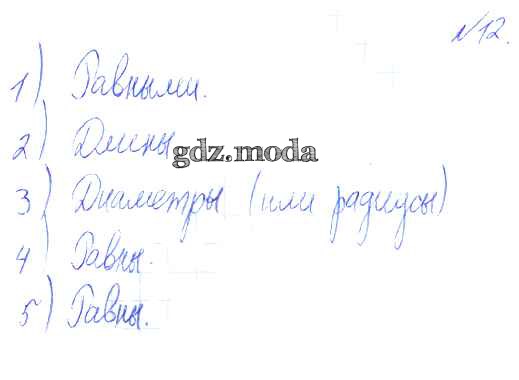 №12.
1) Равными.
2) Длины
gdz.moda
3) Диаметры (или радиусы)
4) Равны.
5) Равны.